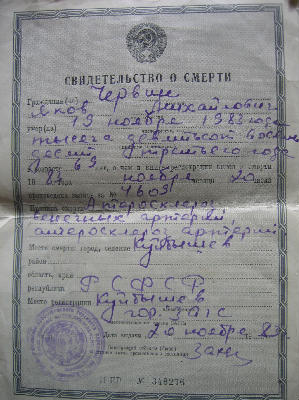 СВИДЕТЕЛЬСТВО О СМЕРТИ
Гражданин(ка) Червин
Яков Михайлович
умер(ла) 19 ноября 1983 года
тысяча девятьсот восемь
десят третьего года
в возрасте 69 лет, о чем в книге регистрации актов о смерти
19 83 года ноября 20 числа
произведена запись за №
Причина смерти Атеросклероз
венечных артерий,
атеросклероз артерий
Место смерти: город, селение Куйбышев
район
область, край
республика РСФСР
Место регистрации Куйбышев
гор. ЗАГС
Дата выдачи 20 ноября 83
№ 348276